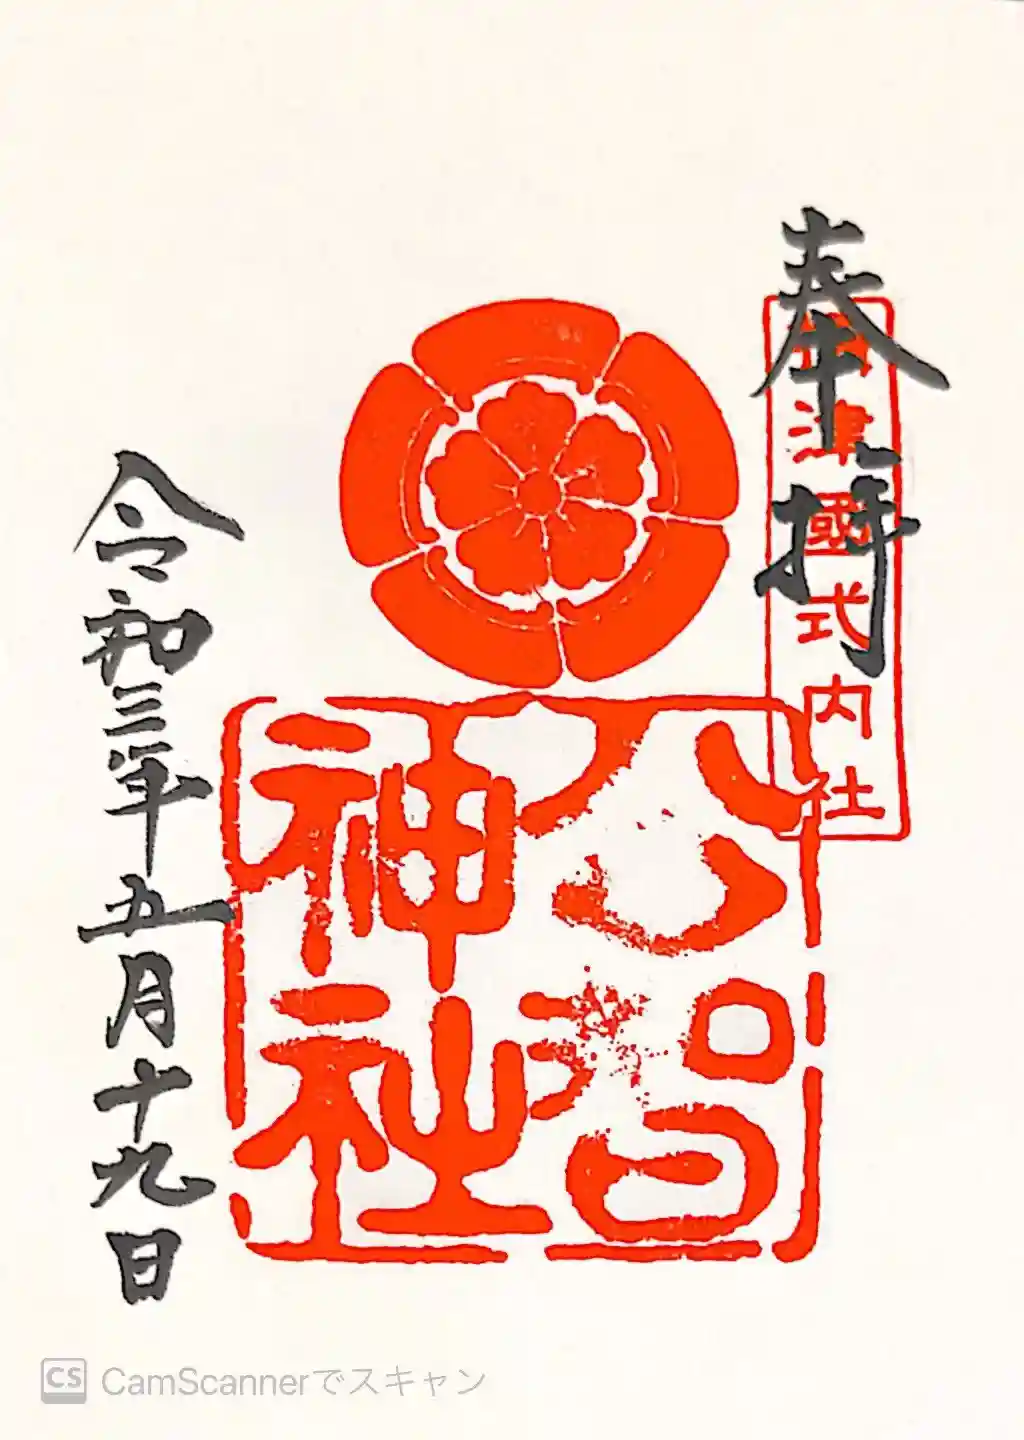 奉拝
津國式内社
公智
神社
令和三年五月十九日
CS CamScannerでスキャン